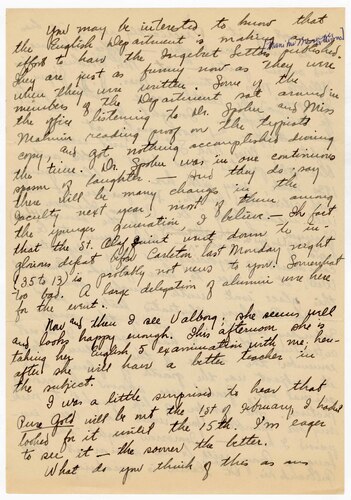 You may be interested to know that
the English Department is making
effort to have the Ingebret Letters published.
They are just as funny now as they were
when they were written. Some of the
members of the Department sat around in
the office listening to Dr. Spohn and Miss
reading proof on the typists
copy, and got nothing accomplished during
the time. Dr. Spohn was in one continuous
spasm of laughter. — And they do say
there will be many changes in the
faculty next year, most of them among
the younger generation, I believe. — The fact
that the St. Olaf quint went down to in-
glorious defeat before Carleton last Monday night
(35 to 13) is probably not news to you. Somewhat
too bad. A large delegation of alumni were here
for the event.
Now and then I see Valborg. She seems well
and looks happy enough. This afternoon she is
taking her English 5 examination with me, here-
after she will have a better teacher in
the subject.
I was a little surprised to hear that
Pure Gold will be out the 1st of February. I hadn't
looked for it until the 15th. I'm eager
to see it — the sooner the better.
What do you think of this as an